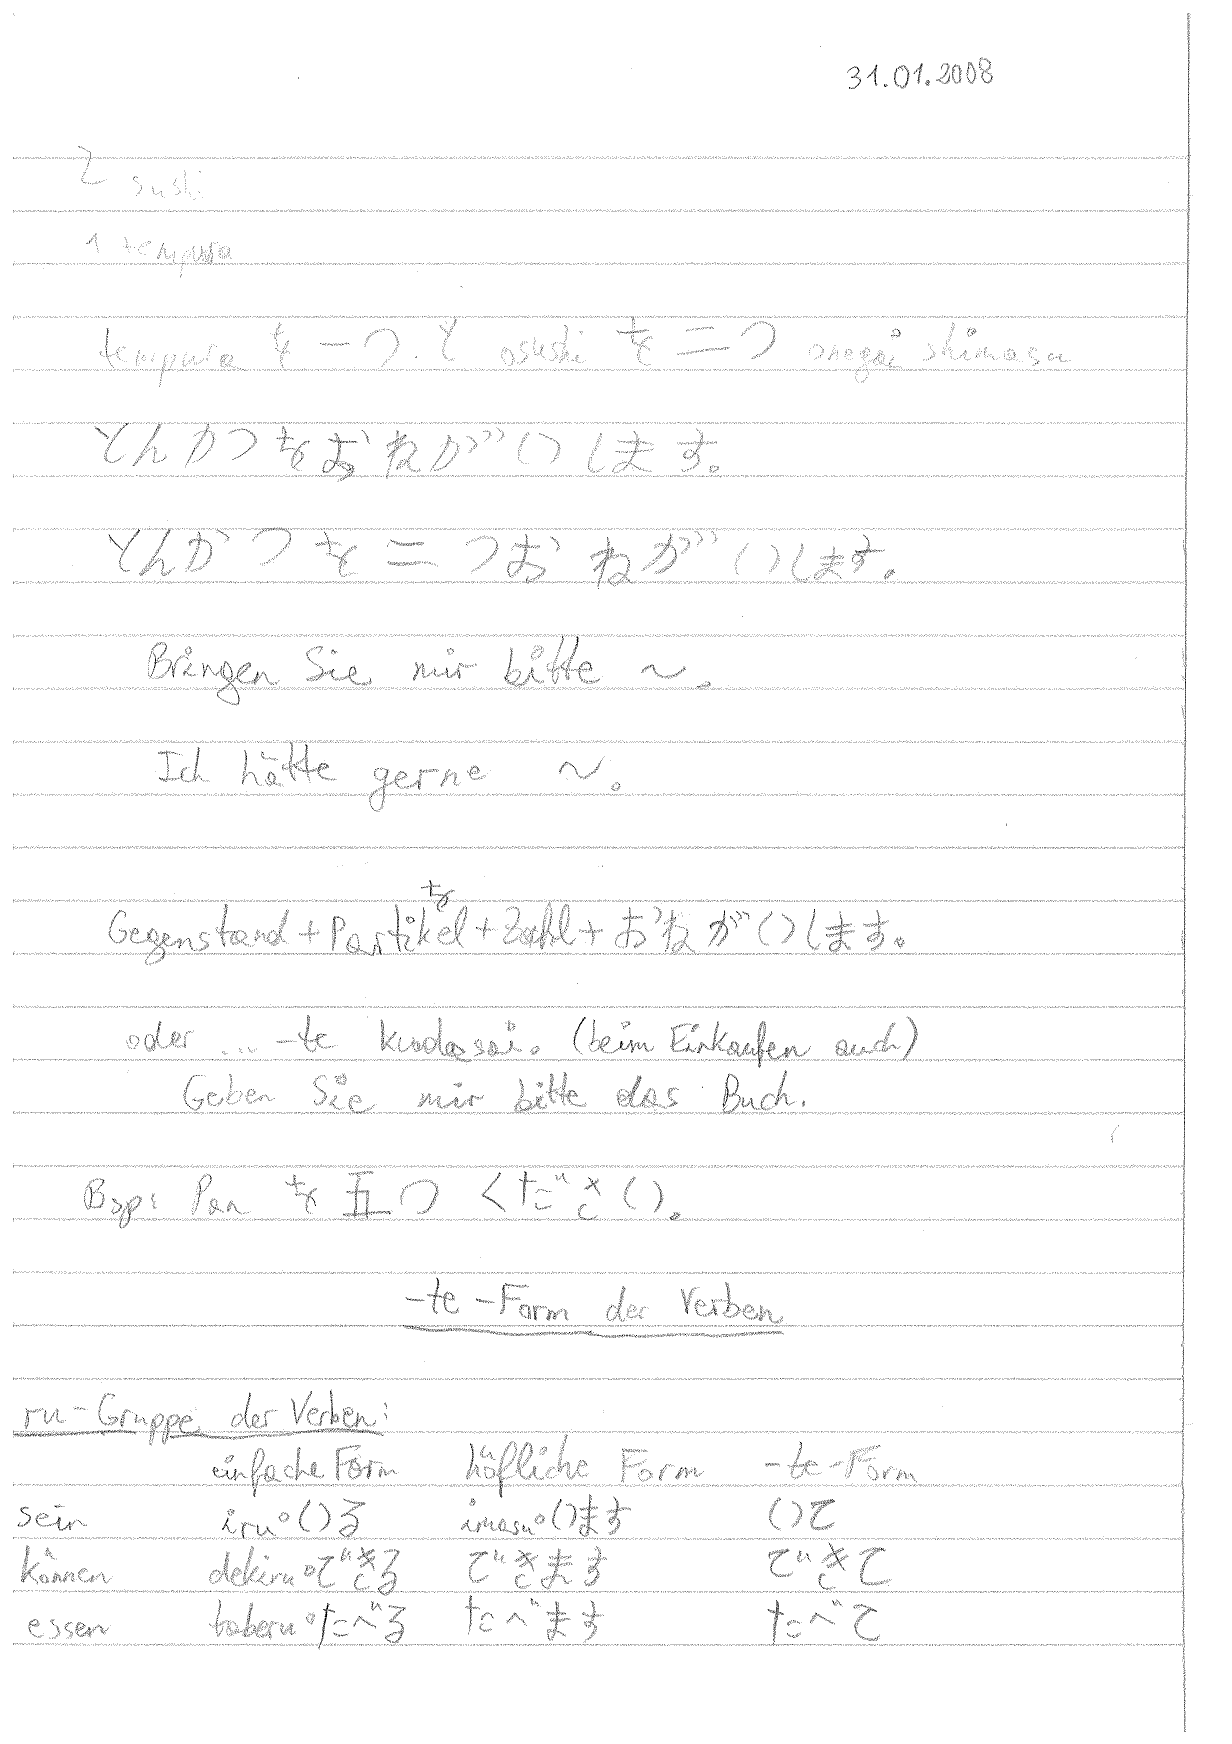 31.01.2008
2 sushi
1 tempura
tempura を 一つ. と osushi を 二つ onegai shimasu
とんかつをおねがいします。
とんかつを二つおねがいします。
Bringen Sie mir bitte ~.
Ich hätte gerne ~.
を
Gegenstand + Partikel + Zahl + おねがいします。
oder ... -te kudasai. (beim Einkaufen auch)
Geben Sie mir bitte das Buch.
Bsp: Pan を 五つ ください。
-te-Form der Verben
ru-Gruppe der Verben:
einfache Form höfliche Form -te-Form
sein iru°いる imasu°います いて
können dekiru°できる できます できて
essen taberu°たべる たべます たべて